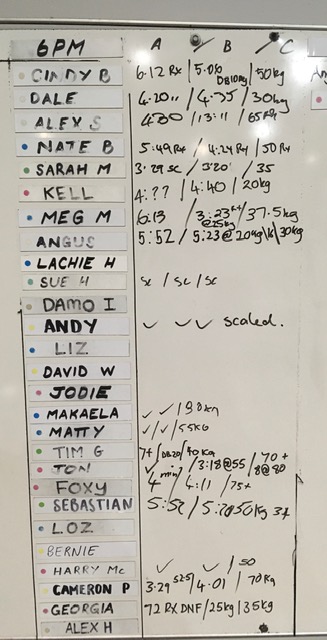 6PM A / B / C
CINDY B 6:12 Rx / 50kg
DALE 4:20 / 4:35 / 30kg
ALEX S / 13:11 /
NATE B 5:49 Rx / 4:24 Rx / 50 Rx
SARAH M 3:29 SC / 3:20 / 35
KELL 4:?? / 4:40 / 20kg
MEG M 6:13 / 3:23 @25kg / 37.5kg
ANGUS 5:52 / 5:23 @ 20kg / 30kg
LACHIE H
SUE H SC / SC / SC
DAMO I
ANDY ✓ ✓ ✓ scaled.
LIZ
DAVID W
JODIE
MAKAELA ✓ ✓ /
MATTY ✓ / ✓ / 55KG
TIM G 7+ / DB20 / 40kg
TON / 3:18@55 / 70+ 8@80
FOXY 4 min / 4:11 / 75+
SEBASTIAN 5:52 /
LOZ
BERNIE
HARRY Mc ✓ ✓ / 50
CAMERON P 3:29 / 4:01 / 70kg
GEORGIA 72 RX DNF / 25kg / 35kg
ALEX H